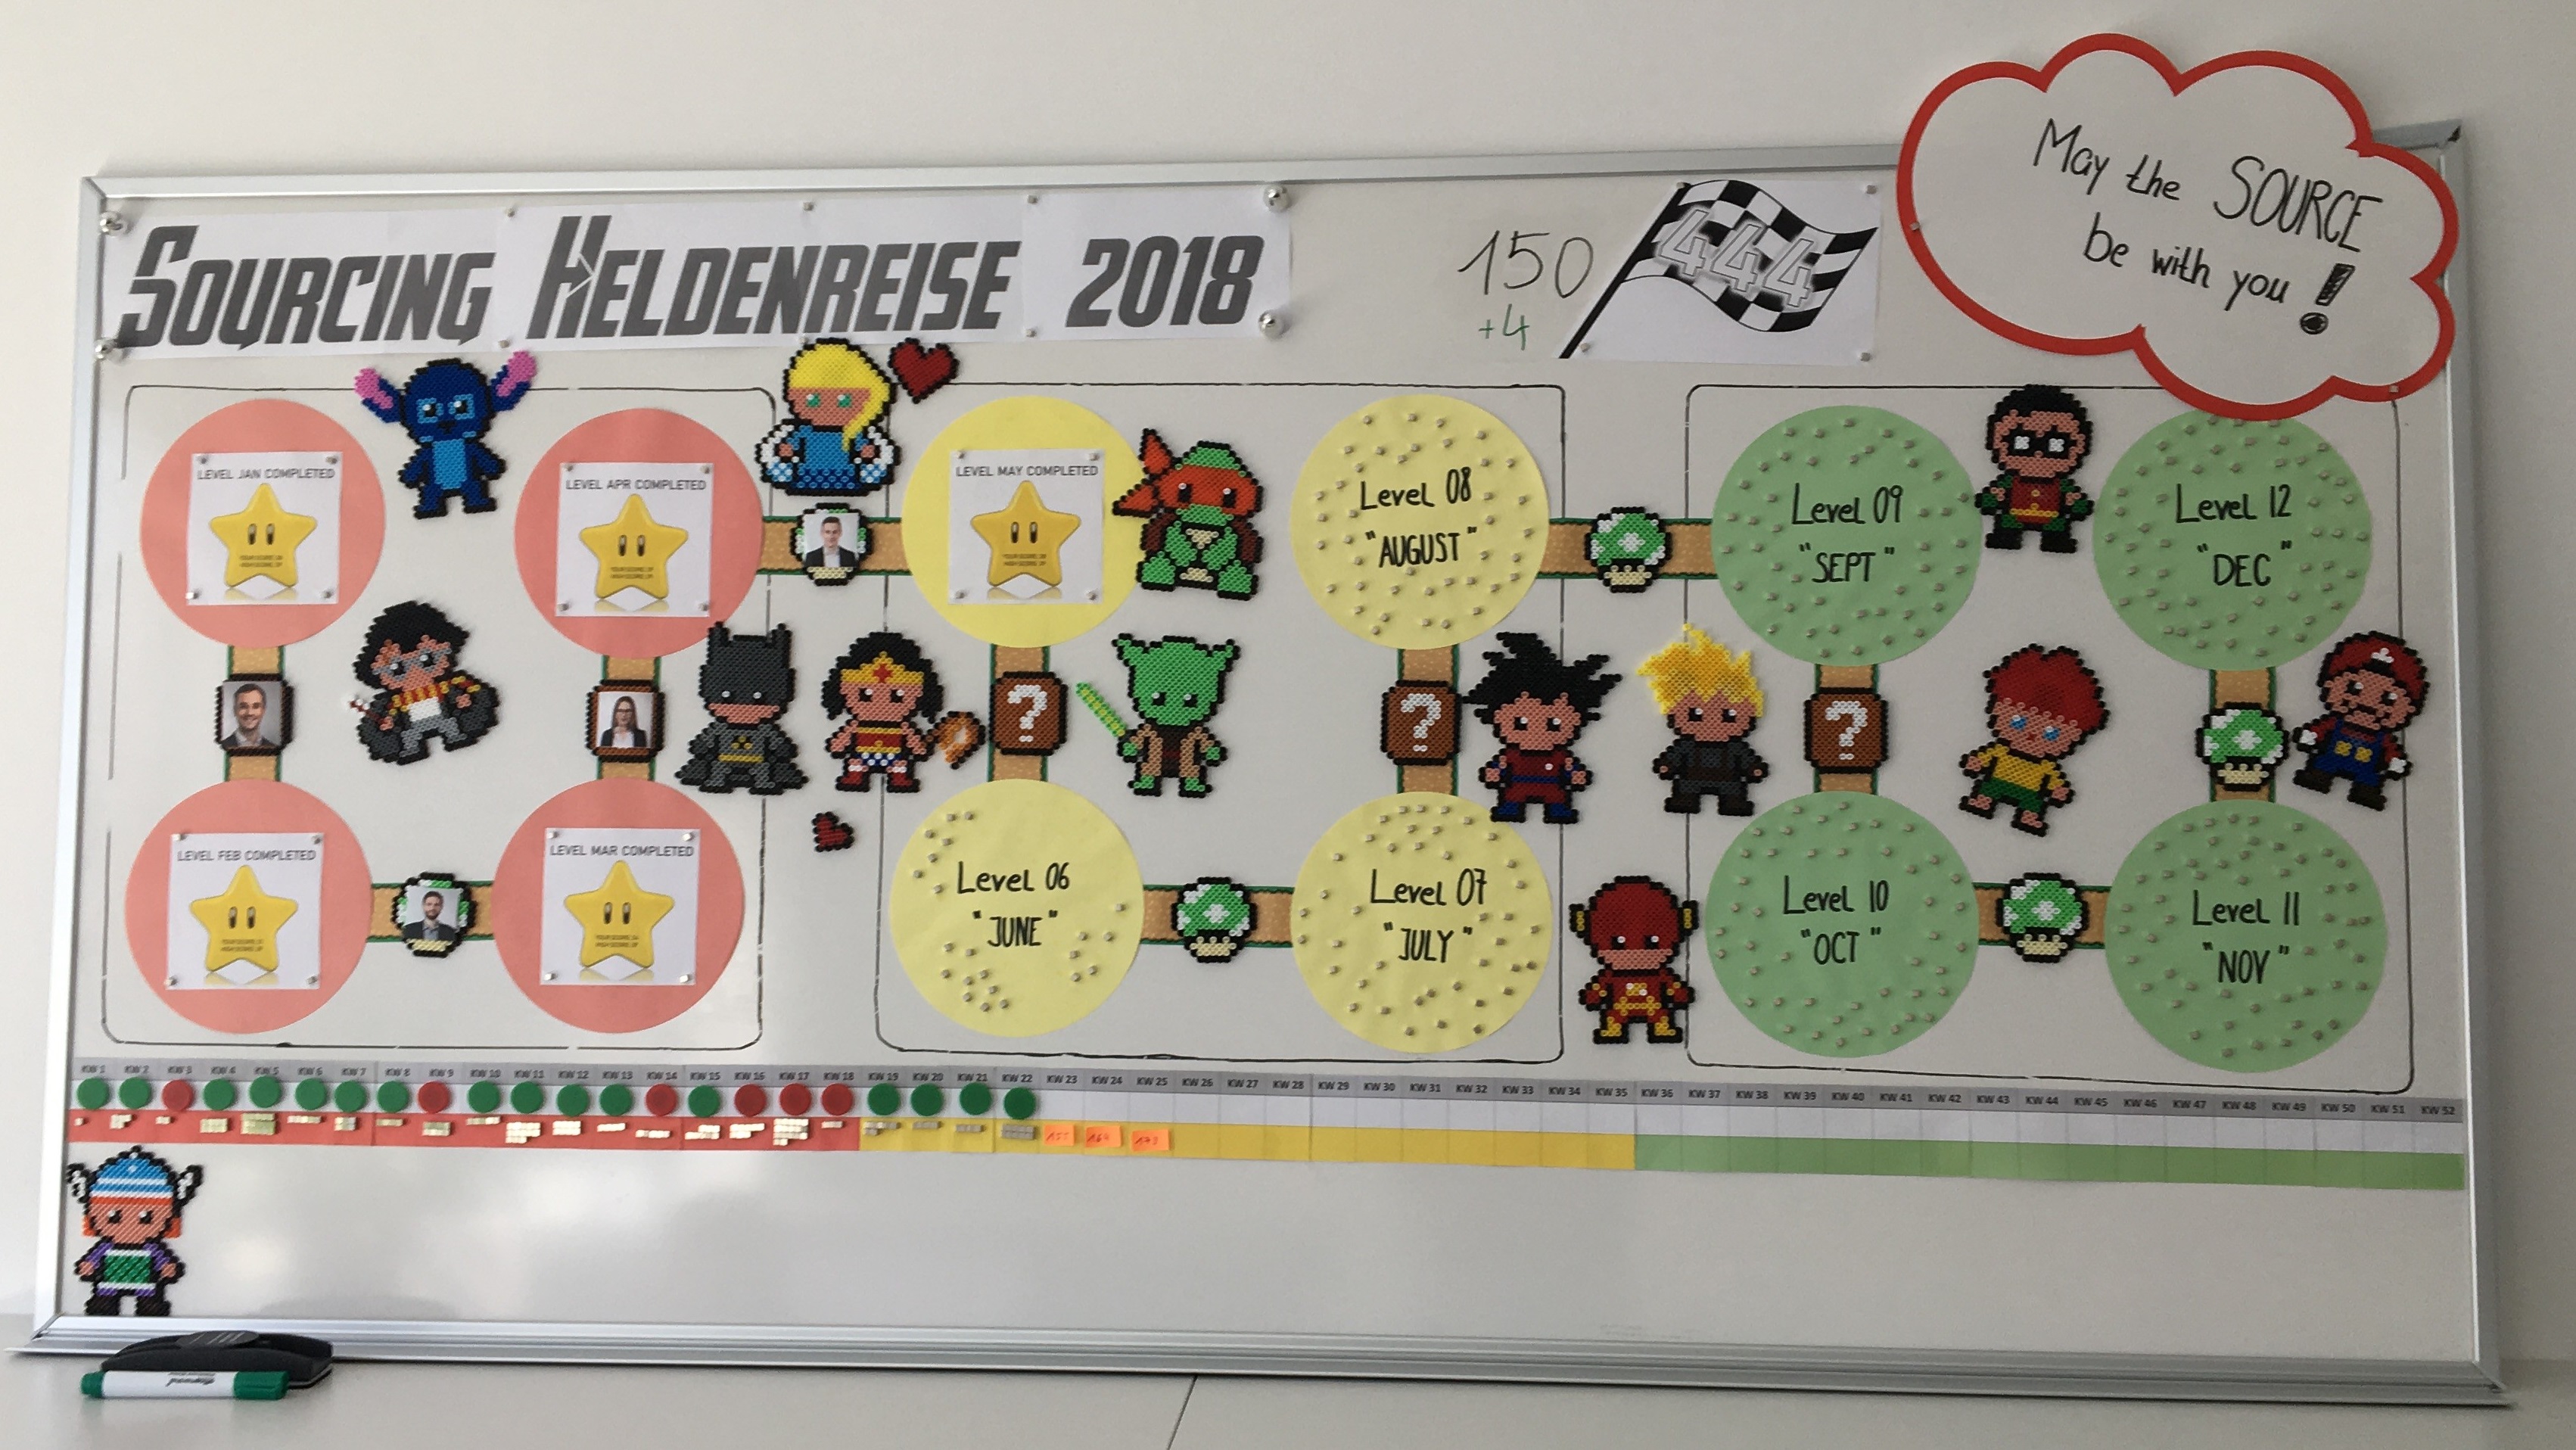 SOURCING HELDENREISE 2018
150
+4
444
May the SOURCE
be with you!
LEVEL JAN COMPLETED
LEVEL APR COMPLETED
LEVEL MAY COMPLETED
Level 08
"AUGUST"
Level 09
"SEPT"
Level 12
"DEC"
?
?
?
LEVEL FEB COMPLETED
LEVEL MAR COMPLETED
Level 06
"JUNE"
Level 07
"JULY"
Level 10
"OCT"
Level 11
"NOV"
KW 1 KW 2 KW 3 KW 4 KW 5 KW 6 KW 7 KW 8 KW 9 KW 10 KW 11 KW 12 KW 13 KW 14 KW 15 KW 16 KW 17 KW 18 KW 19 KW 20 KW 21 KW 22 KW 23 KW 24 KW 25 KW 26 KW 27 KW 28 KW 29 KW 30 KW 31 KW 32 KW 33 KW 34 KW 35 KW 36 KW 37 KW 38 KW 39 KW 40 KW 41 KW 42 KW 43 KW 44 KW 45 KW 46 KW 47 KW 48 KW 49 KW 50 KW 51 KW 52